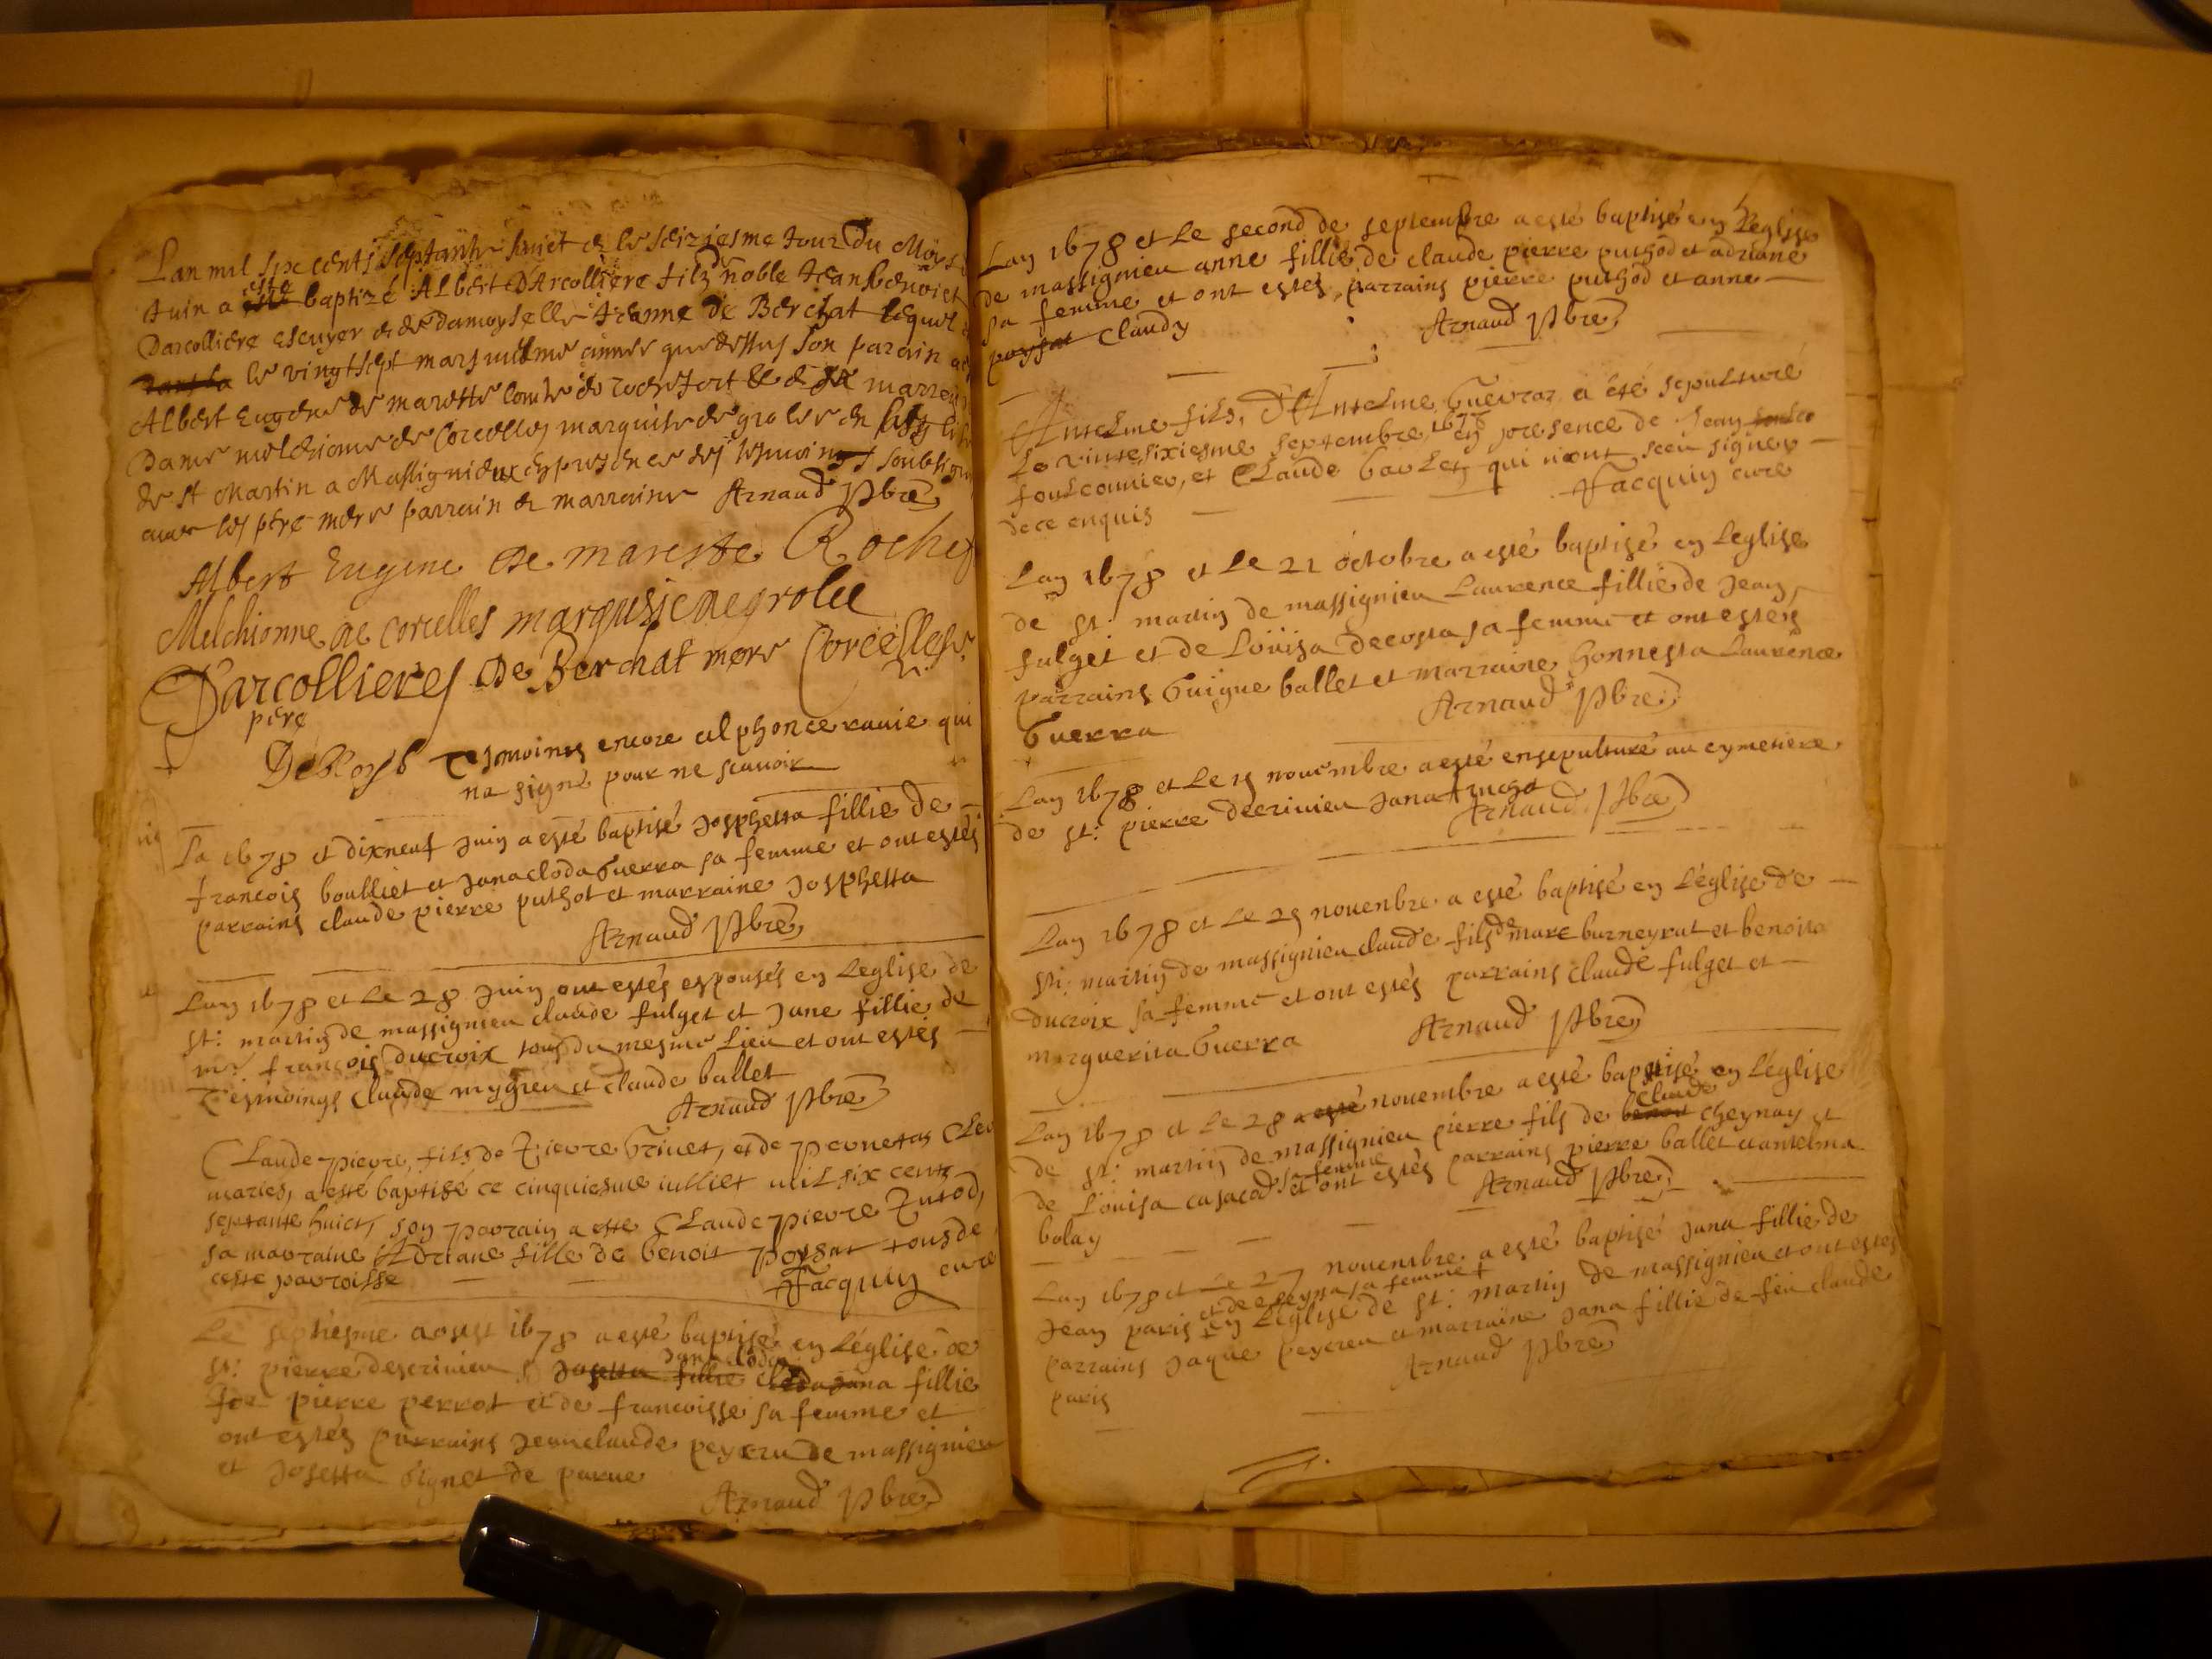 Lan mil six cents septante huict & le seiziesme Jour du Mois
Juin a esté baptizé Albert DArcolliere filz de noble Jean benoiet
Darcolliere escuyer & de damoyselle Jeanne de Berchat lequel
le vingtsept mars mesme annee que dessus son parain
Albert Eugene de mareste comte de rochefort & sa marraine
Dame melchionne de Corcelles marquise de grolee en
de st Martin a Massignieux en presence des tesmoings soubsignes
avec les pere mere parrain & marraine Arnaud pbre
Albert Eugene De mareste Rochef
Melchionne de corcelles marquise de grolee
Darcollieres De Berchat mere Corcelles
père
tesmoins encore alphonce rauie qui
na signé pour ne scauoir
La 1678 et dixneuf Juin a esté baptisé Josphetta fillie de
francois boulliet et Janacloda Guerra sa femme et ont estés
parrains claude pierre puthot et marraine Josphetta
Arnaud pbre
Lan 1678 et Le 28 Juin ont estés espousés en Leglise de
st: martin de massignieu claude fulget et Jane fillie de
mr: françois ducroix tous du mesme Lieu et ont estés
Tesmoings claude mygieu et claude ballet
Arnaud pbre
Claude pierre, fils de Pierre Trinet, et de peronetas
maries, a esté baptisé ce cinquiesme iulliet mil six cents
septante huict, son parrain a esté Claude pierre Putod,
sa marraine Adriane fille de benoit poysat tous de
ceste parroisse Jacquin curé
Le septiesme aoust 1678 a esté baptisé en Léglise de
st: pierre descrinieu Josetta fillie Jana cloda cloda Jana fillie
de pierre perrot et de francoisse sa femme et
ont estés parrains Jeanclaude peycru de massignieu
et Josetta Gignet de parue
Arnaud pbre
Lan 1678 et Le second de septembre a esté baptisé en Leglise
de massignieu anne fillie de claude pierre puthod et adriane
sa femme et ont estés parrains pierre puthod et anne
poysat claudy Arnaud pbre
Anselme fils, D'Anselme Guerraz a été sepulturé
Le vintesixiesme septembre 1678 en presence de Jean
foulcounier, et Claude baulet, qui n'ont sceu signer
de ce enquis Jacquin curé
Lan 1678 et Le 21 octobre a esté baptisé en Leglise
de st: martin de massignieu Laurence fillie de Jean
fulget et de Loüisa decosta sa femme et ont estés
parrains Guigue ballet et marraine honnesta Laurence
Guerra Arnaud pbre
Lan 1678 et Le 15 nouembre a esté ensepulturé au cymetiere
de st: pierre decrinieu Jana
Arnaud pbre
Lan 1678 et Le 25 nouenbre a esté baptisé en Léglise de
st: martin de massignieu claude fils de marc burneyrat et benoita
ducroix sa femme et ont estés parrains claude fulget et
marguerita Guerra Arnaud pbre
Lan 1678 et Le 28 a esté nouembre a esté baptisé en Léglise
de st: martin de massignieu pierre fils de benoit claude cheynay et
de Loüisa casacod sa femme et ont estés parrains pierre ballet et antelma
bolay Arnaud pbre
Lan 1678 et Le 27 nouembre a esté baptisé Jana fillie de
Jean paris et de sa femme en Léglise de st: martin de massignieu et ont estés
parrains Jaque peycreu et marraine Jana fillie de feu claude
paris Arnaud pbre